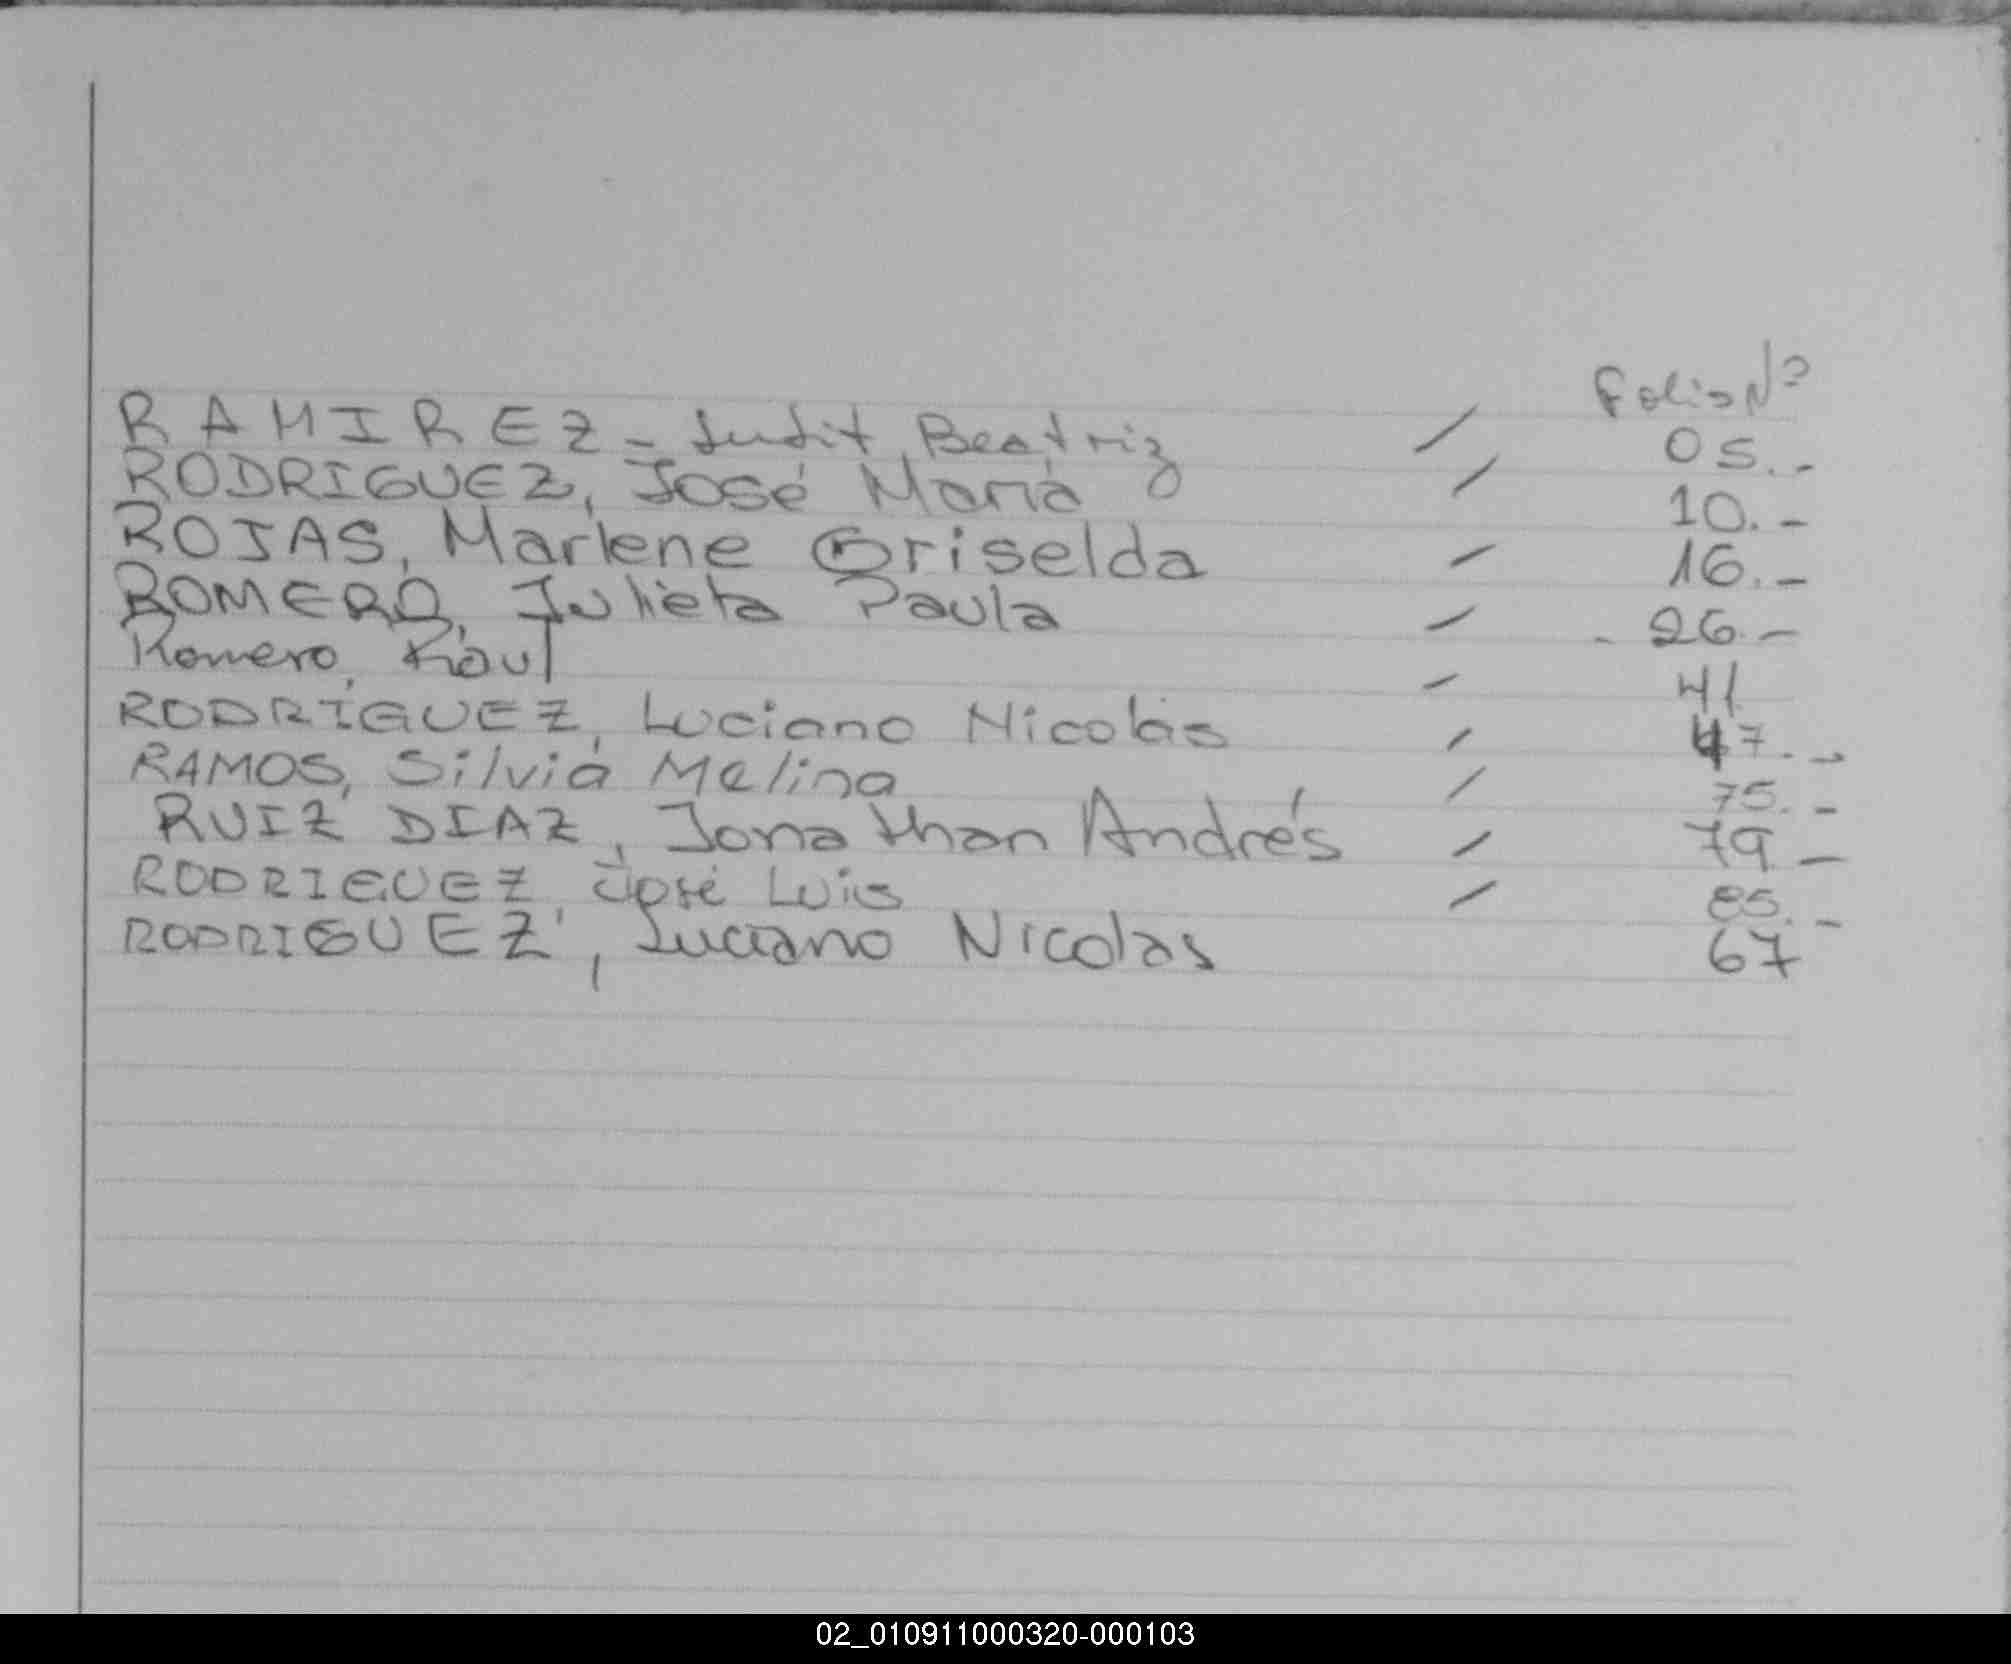 Folio Nº
RAMIREZ - Judit Beatriz / 05.-
RODRIGUEZ, José María / 10.-
ROJAS, Marlene Griselda / 16.-
ROMERO, Julieta Paula / 26.-
Romero, Raúl / 41
RODRÍGUEZ, Luciano Nicolás / 47.-
RAMOS, Silvia Melina / 75.-
RUIZ DIAZ, Jonathan Andrés / 79 -
RODRIGUEZ, José Luis / 85.-
RODRIGUEZ, Luciano Nicolas 67
02_010911000320-000103